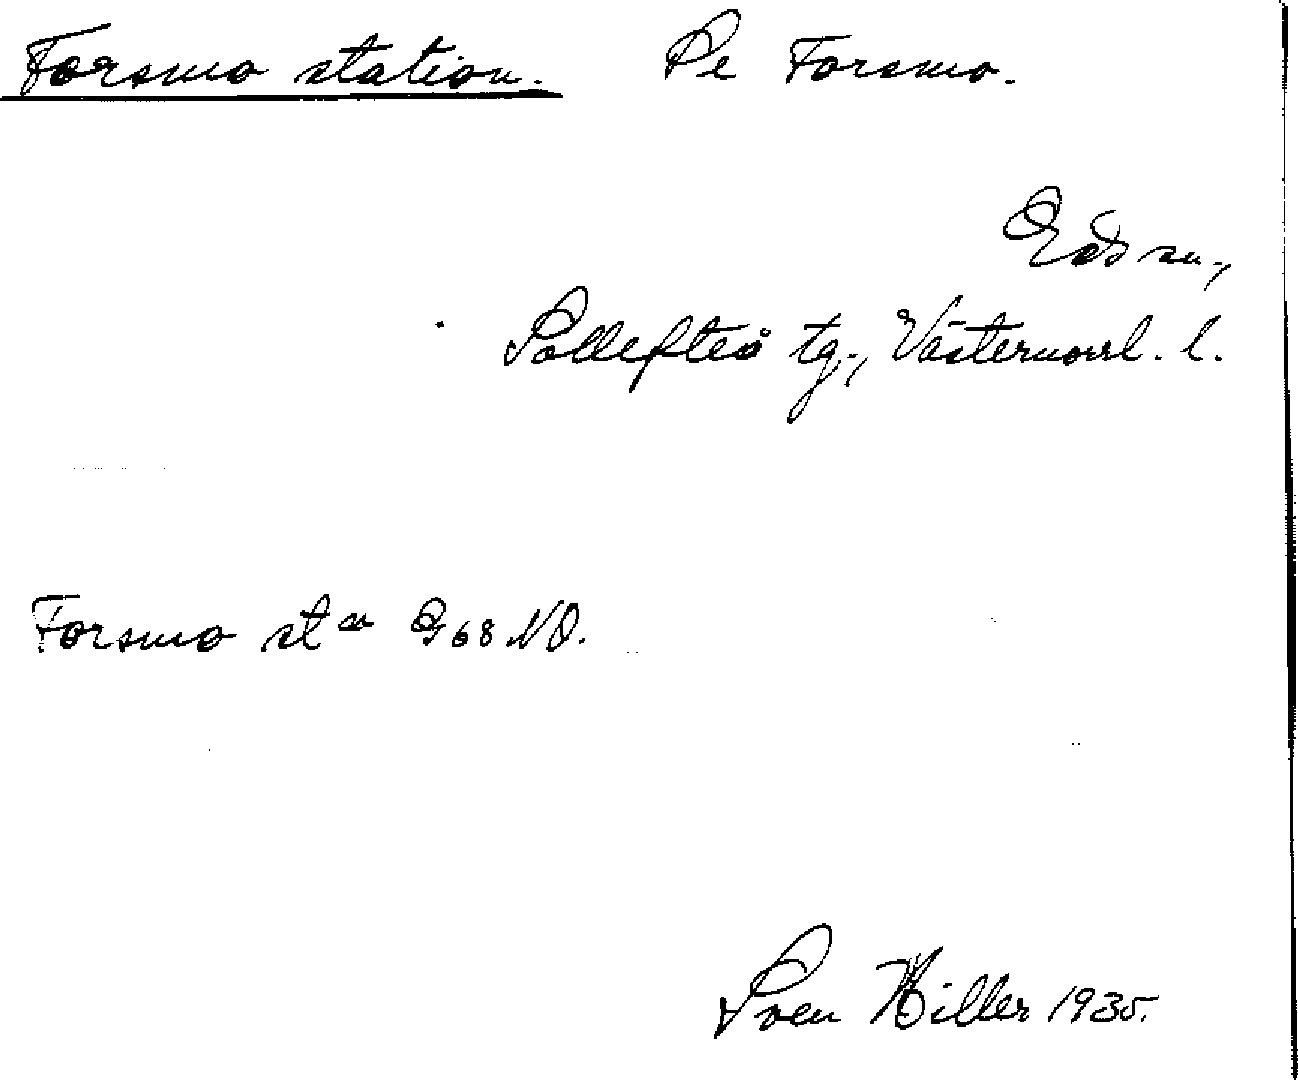 Forsmo station. Se Forsmo.
Eds sn.,
Sollefteå tg., Västernorrl. l.
Forsmo stn G 68 NO.
Sven Hiller 1935.